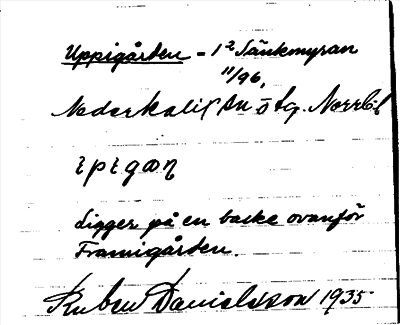 Uppigården - 1² Sänkmyran
11/96,
Nederkalix sn
Norrb.
ligger på en backe ovanför
Framigården.
Ruben Danielsson 1935